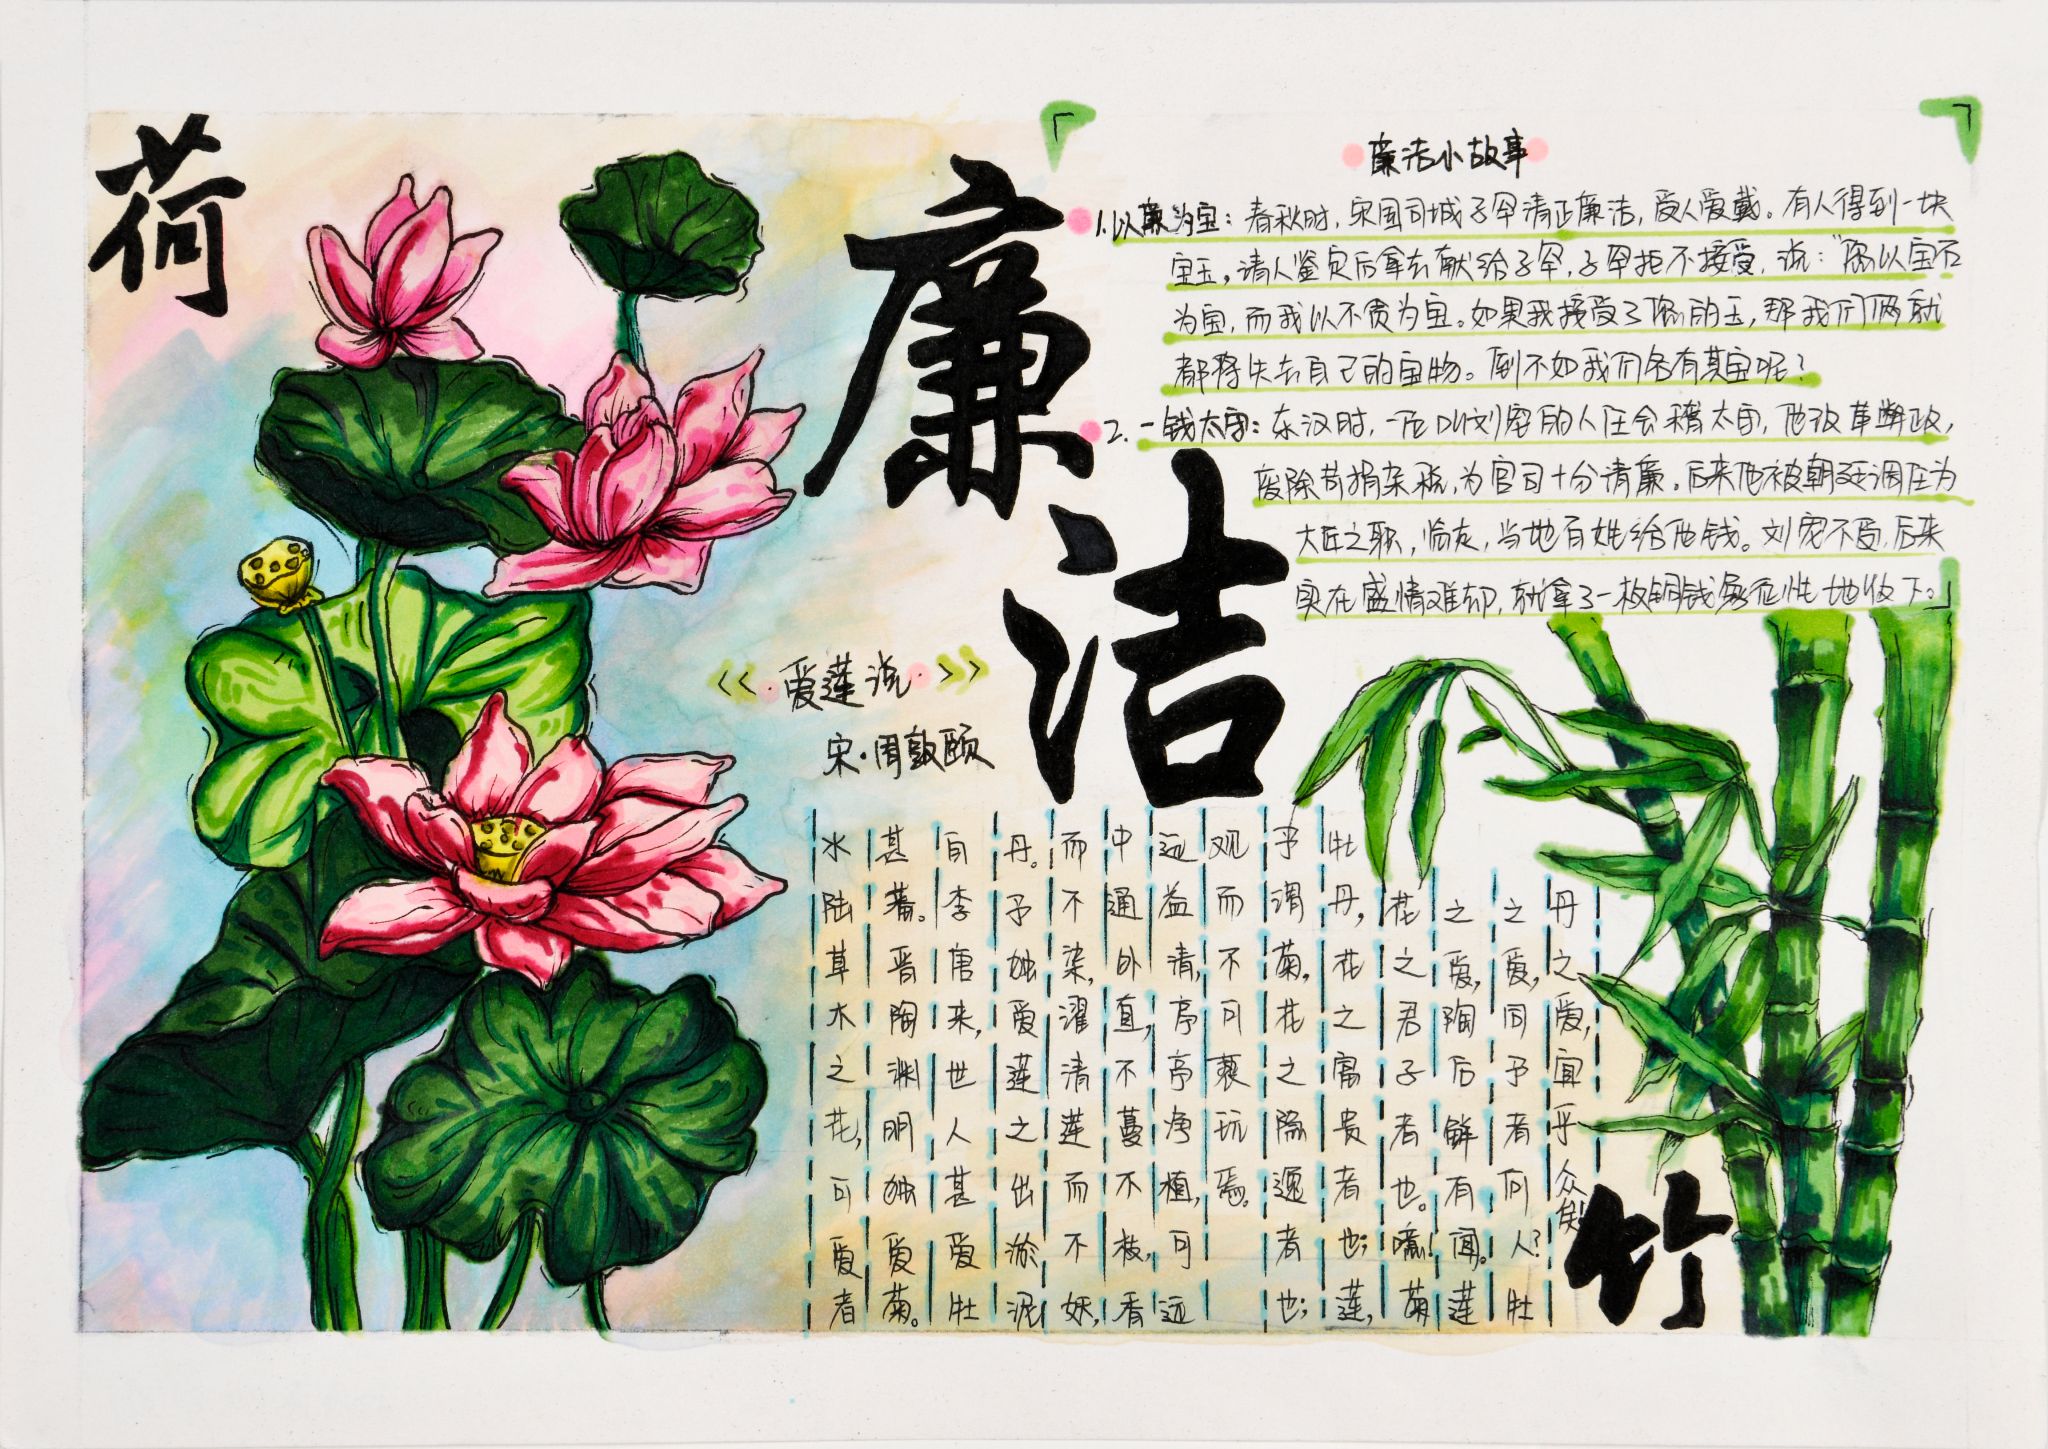 荷
廉洁
廉洁小故事
1.以廉为宝：春秋时，宋国司城子罕清正廉洁，受人爱戴。有人得到一块
宝玉，请人鉴定后拿去献给子罕，子罕拒不接受，说：“您以宝石
为宝，而我以不贪为宝。如果我接受了您的玉，那我们俩就
都将失去自己的宝物。倒不如我们各有其宝呢？
2.一钱太守：东汉时，一位叫刘宠的人任会稽太守，他改革弊政，
废除苛捐杂税，为官司十分清廉。后来他被朝廷调任为
大匠之职，临走，当地百姓给他钱。刘宠不受，后来
实在盛情难却，就拿了一枚铜钱象征性地收下。
《·爱莲说·》
宋·周敦颐
水陆草木之花，可爱者
甚蕃。晋陶渊明独爱菊。
自李唐来，世人甚爱牡
丹。予独爱莲之出淤泥
而不染，濯清莲而不妖，
中通外直，不蔓不枝，香
远益清，亭亭净植，可远
观而不可亵玩焉。
予谓菊，花之隐逸者也；
牡丹，花之富贵者也；莲，
花之君子者也。噫！菊
之爱，陶后鲜有闻。莲
之爱，同予者何人？牡
丹之爱，宜乎众矣！
竹